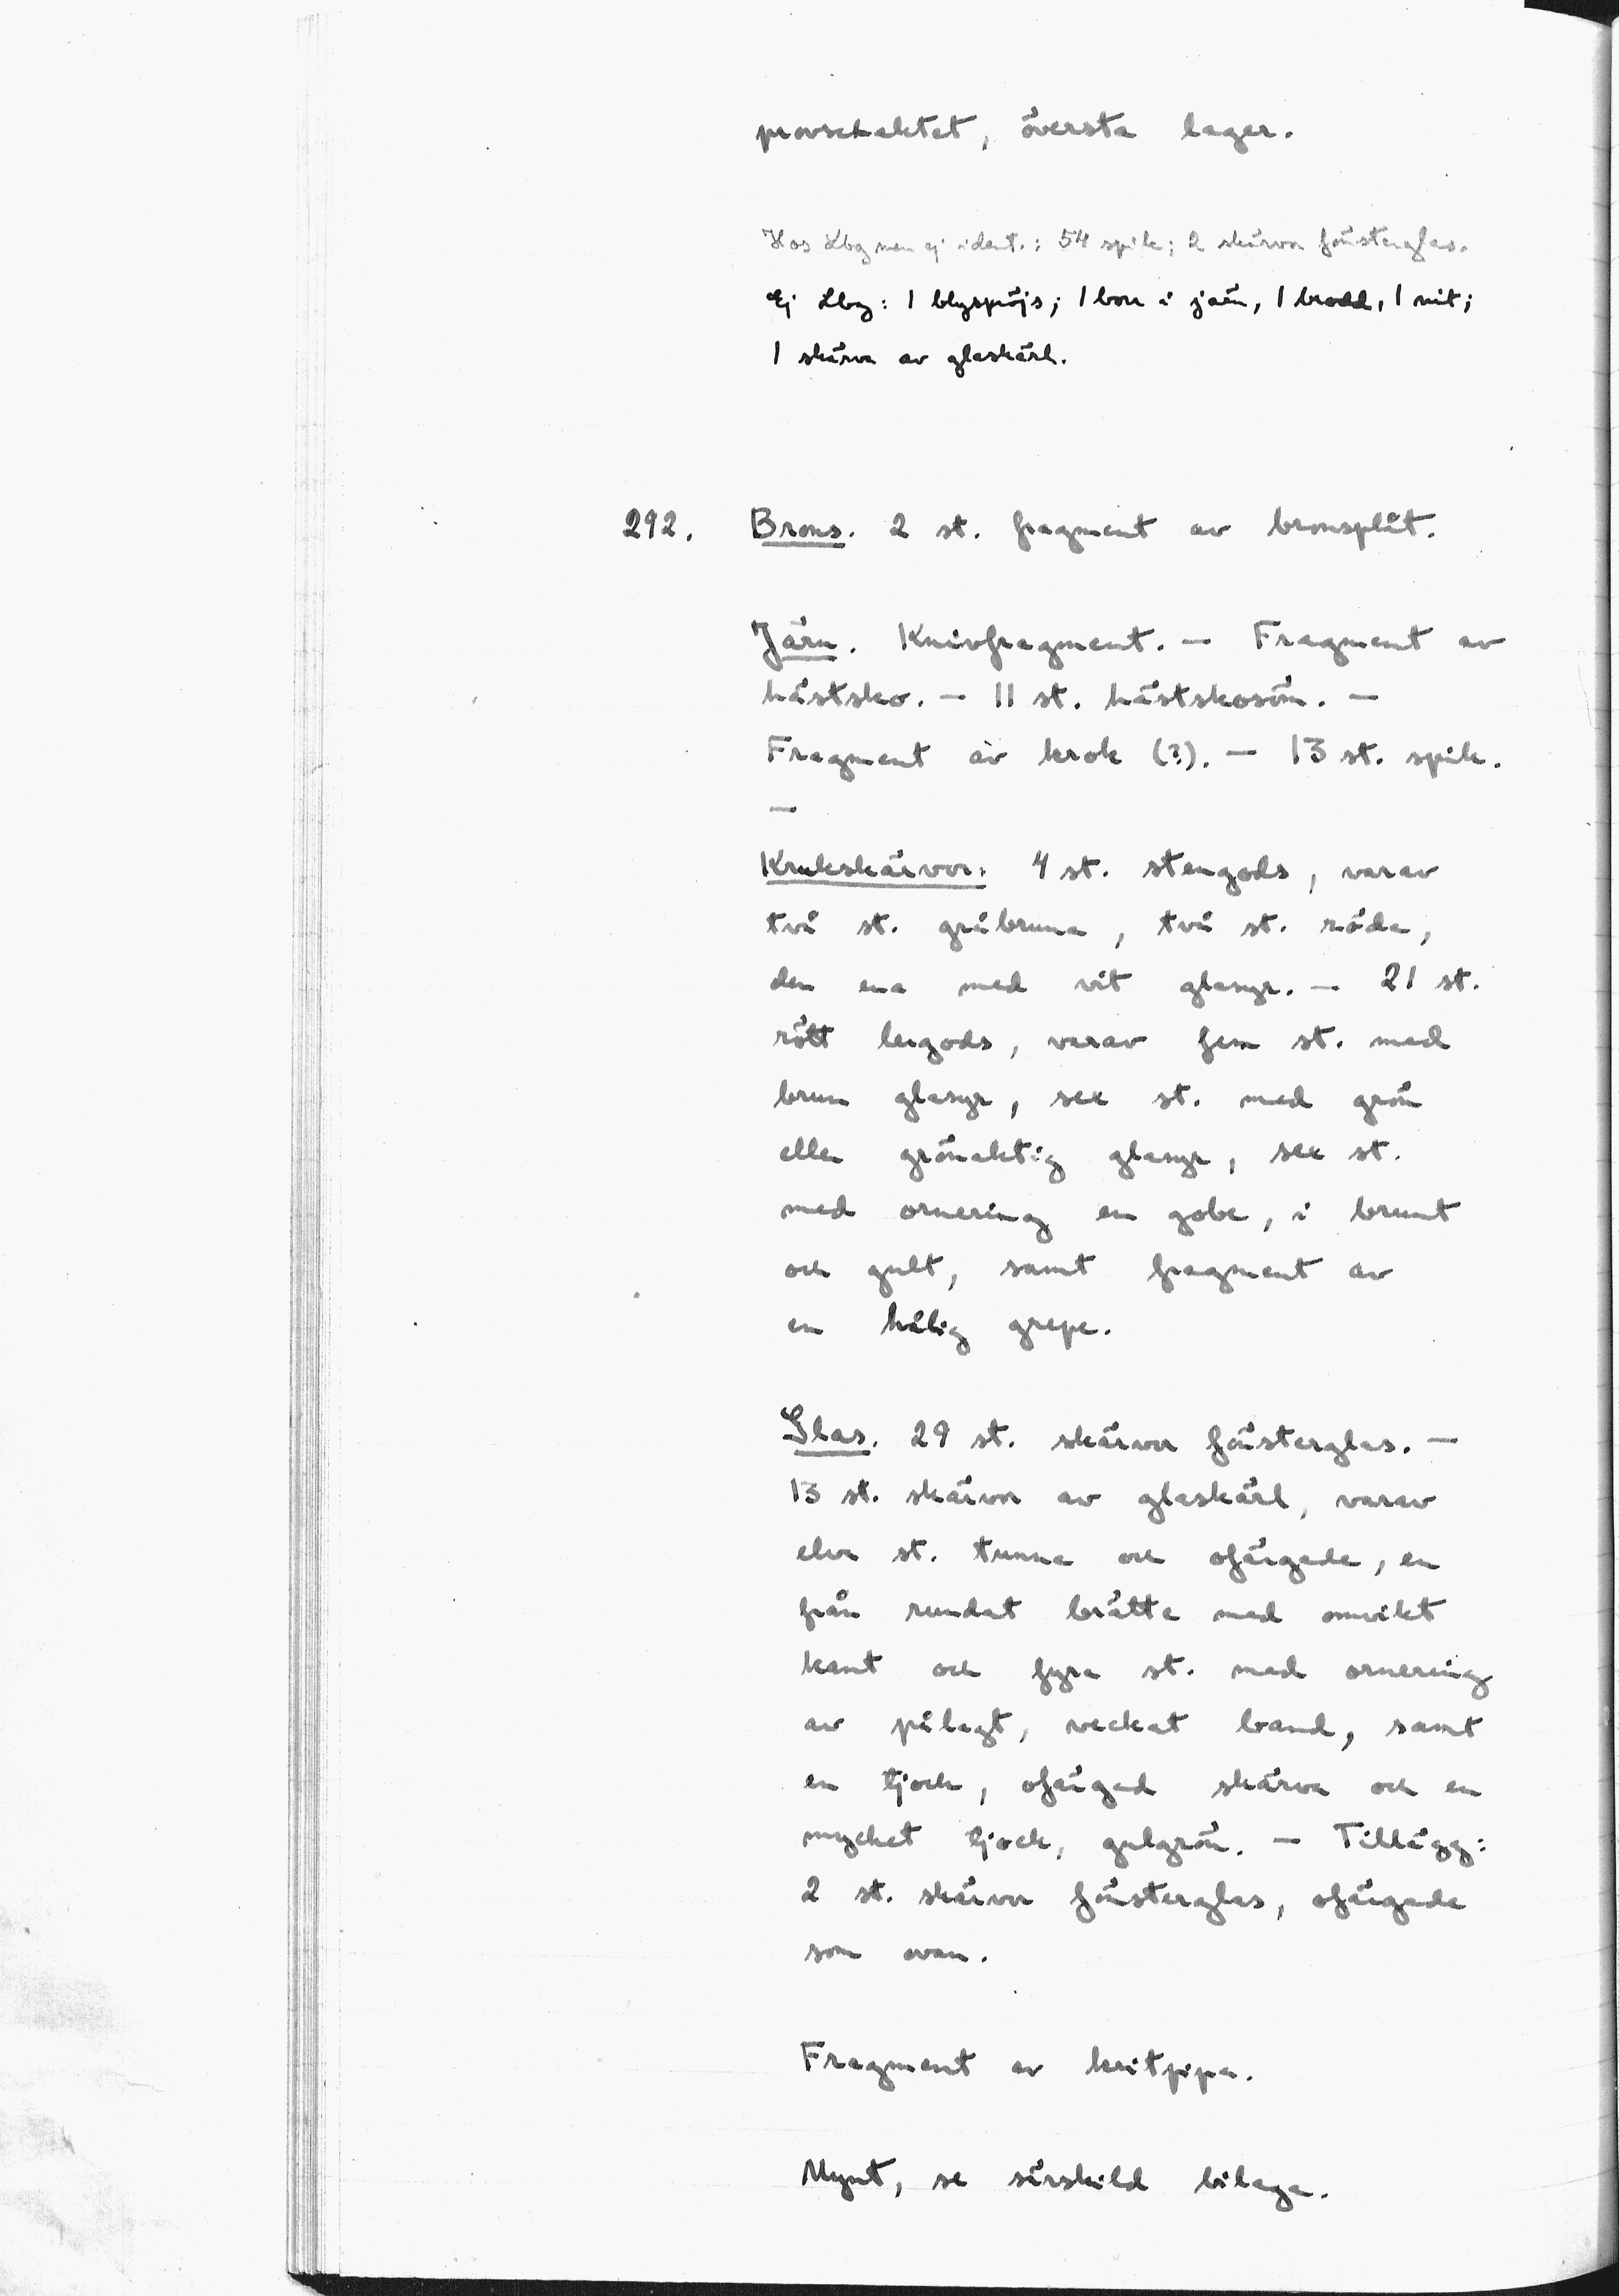 provschaktet, översta lager.
Hos Lbg men ej ident.: 54 spik; 2 skärvor fönsterglas.
Ej Lbg: 1 blyspröjs; 1 borr i järn, 1 brodd, 1 nit;
1 skärva av glaskärl.
292. Brons. 2 st. fragment av bronsplåt.
Järn. Knivfragment. — Fragment av
hästsko. — 11 st. hästskosöm. —
Fragment av krok (?). — 13 st. spik.
—
Krukskärvor: 4 st. stengods, varav
två st. gråbruna, två st. röda,
den ena med vit glasyr. — 21 st.
rött lergods, varav fem st. med
brun glasyr, sex st. med grön
eller grönaktig glasyr, sex st.
med ornering en gobe, i brunt
och gult, samt fragment av
en hålig grepe.
Glas. 29 st. skärvor fönsterglas. —
13 st. skärvor av glaskärl, varav
elva st. tunna och ofärgade, en
från rundat brätte med omvikt
kant och fyra st. med ornering
av pålagt, veckat band, samt
en tjock, ofärgad skärva och en
mycket tjock, gulgrön. — Tillägg:
2 st. skärvor fönsterglas, ofärgade
som ovan.
Fragment av kritpipa.
Mynt, se särskild bilaga.